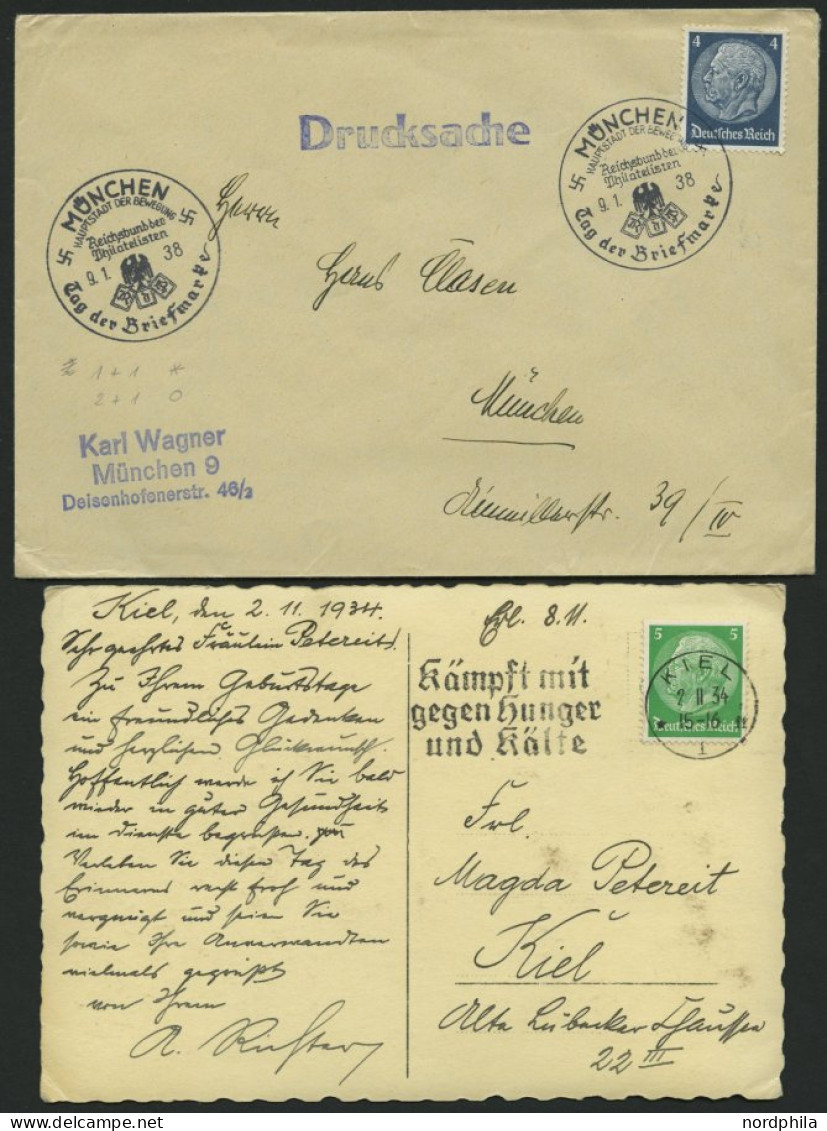 4 4
Deutsches Reich
Drucksache
MÜNCHEN
HAUPTSTADT DER BEWEGUNG
Reichsbund der
Philatelisten
9.1. 38
R d P
Tag der Briefmarke
MÜNCHEN
HAUPTSTADT DER BEWEGUNG
Reichsbund der
Philatelisten
9.1. 38
R d P
Tag der Briefmarke
Herrn
Hans Clasen
München
39/IV
1+1 *
2+1 O
Karl Wagner
München 9
Deisenhofenerstr. 46/2
Kiel, den 2.11.1934.
Sehr geehrtes Fräulein Petereit!
Zu Ihrem Geburtstage
ein freundliches Gedenken
und herzlichen Glückwunsch.
Hoffentlich werde ich Sie bald
wieder in guter Gesundheit
im Dienste begrüßen.
Verleben Sie diesen Tag des
Erinnerns recht froh und
vergnügt und seien Sie
sowie Ihre Anverwandten
vielmals gegrüßt
von Ihrem
A. Richter
8.11.
Kämpft mit
gegen Hunger
und Kälte
5 5
Deutsches Reich
KIEL
2 11 34
1
Frl.
Magda Petereit
Kiel
Alte Lübecker Chaussee
22 III
nordphila.com